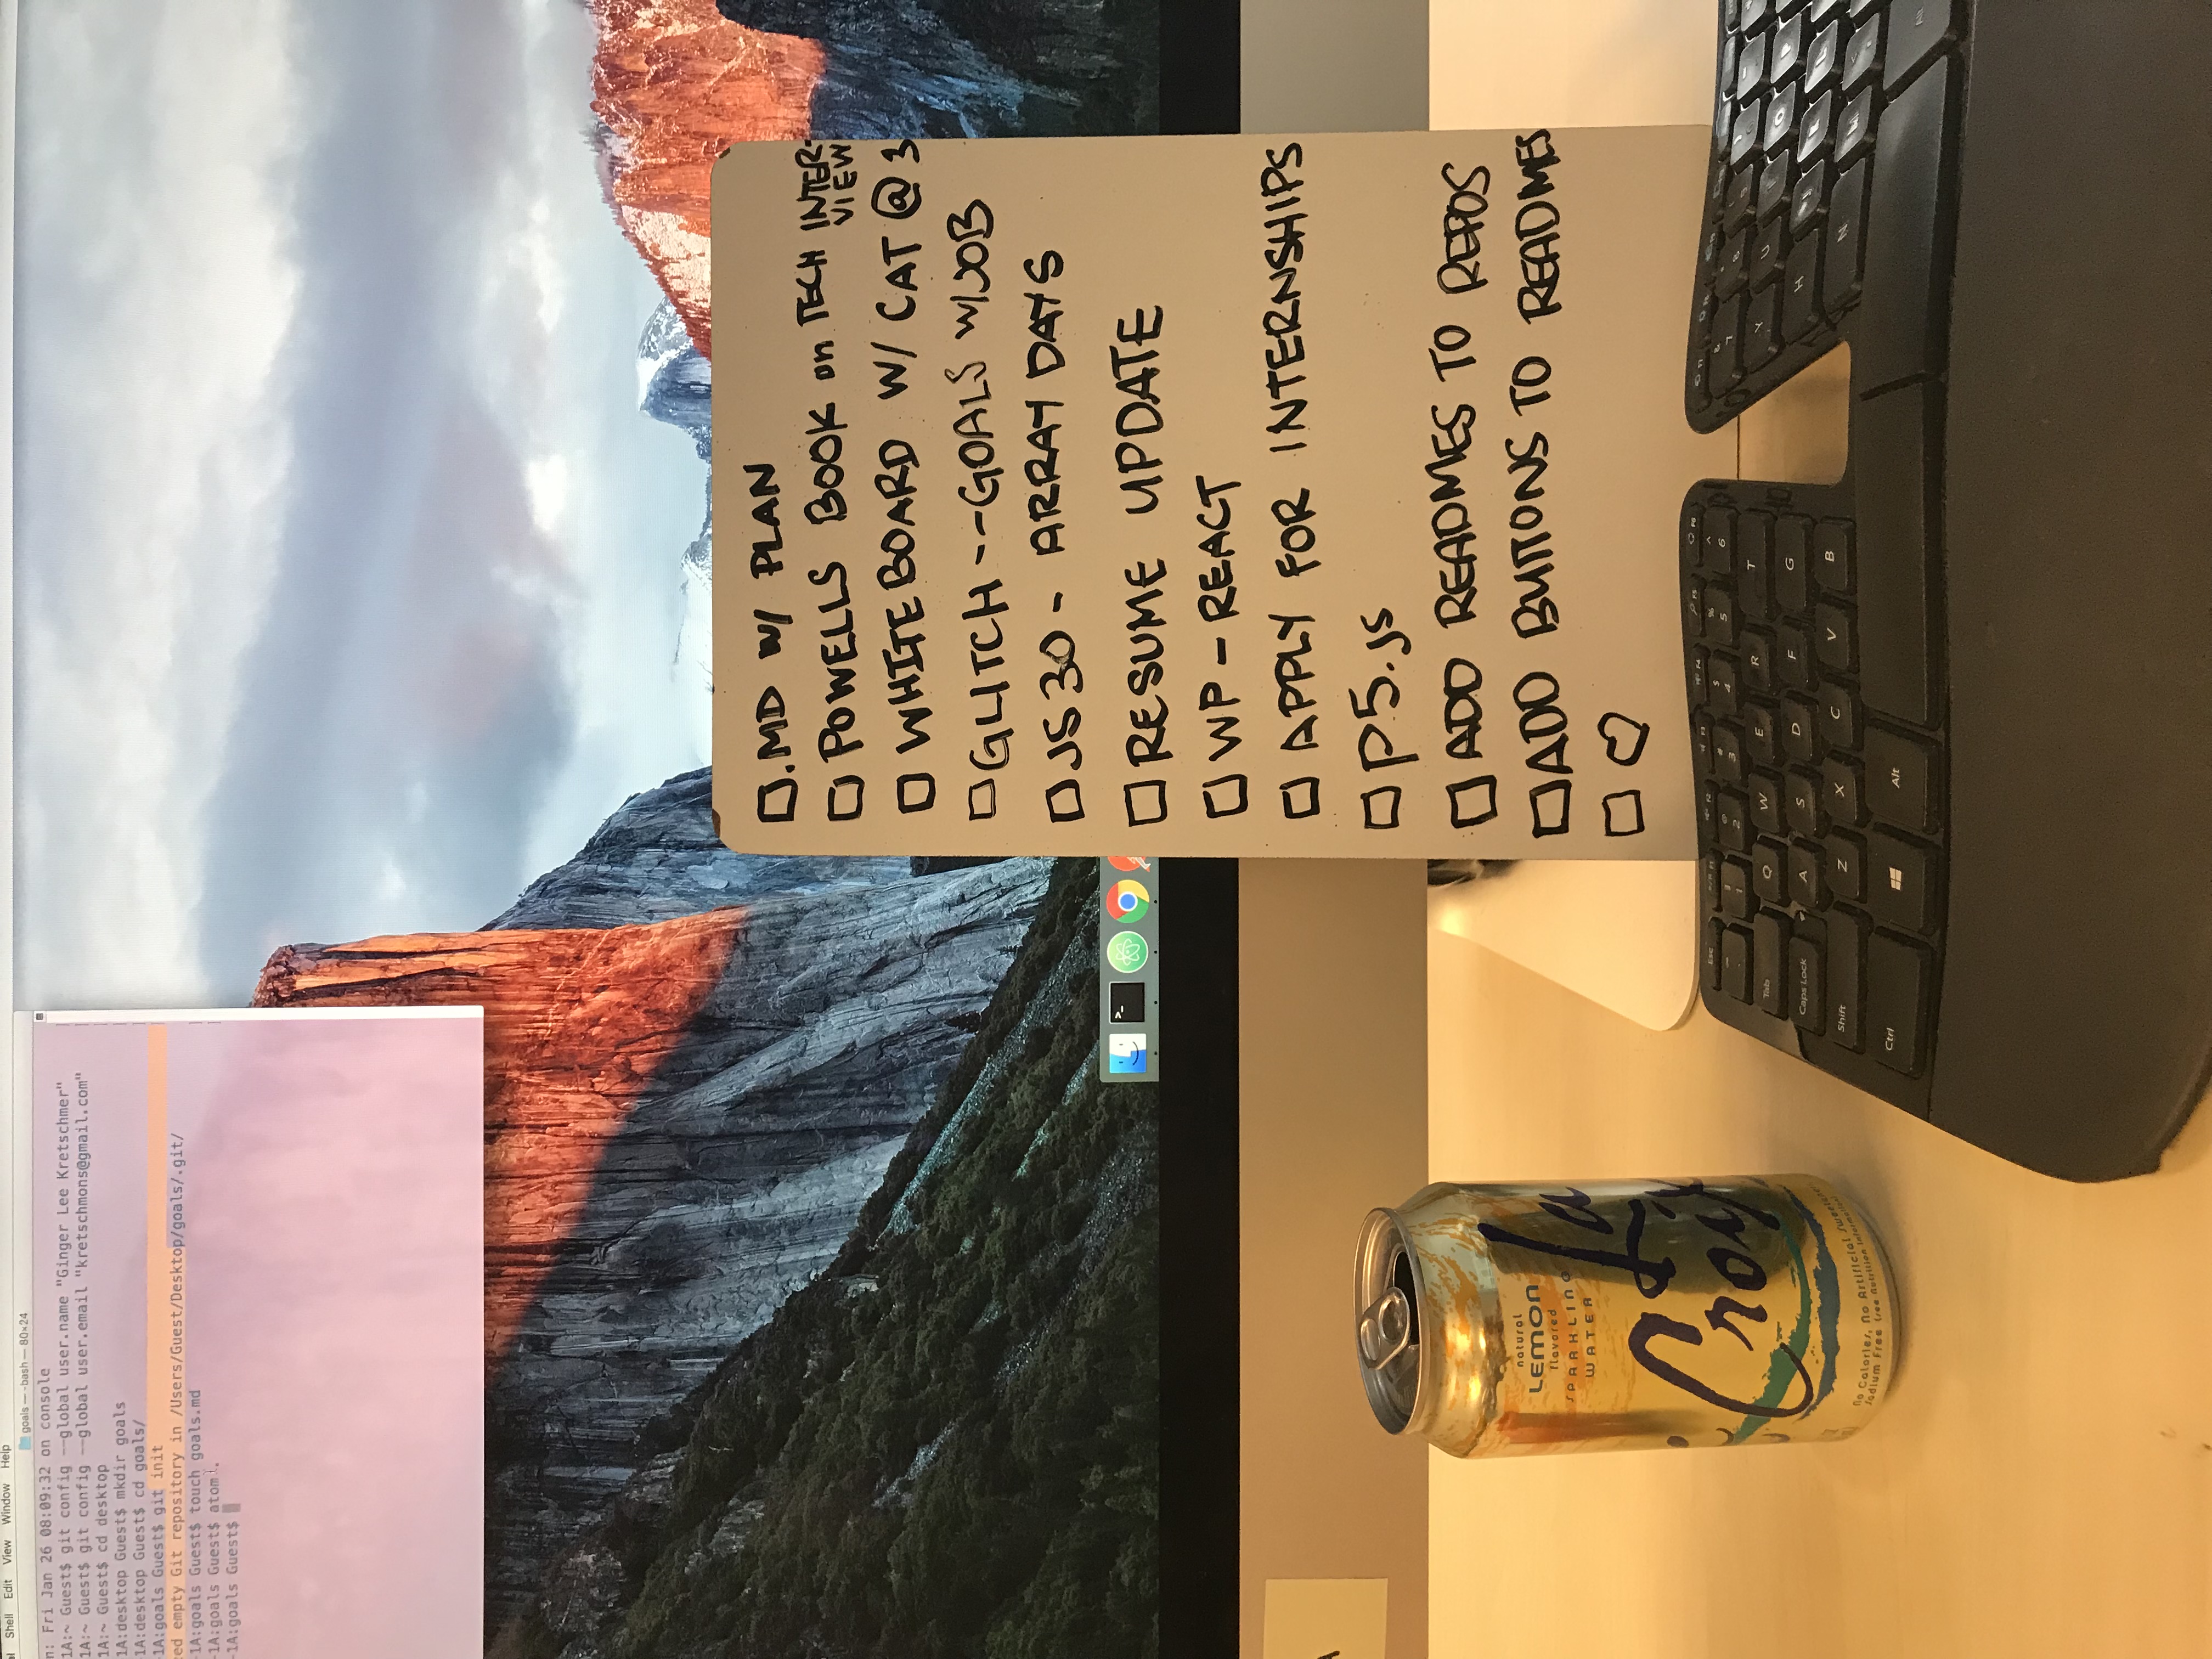 Shell Edit View Window Help
goals — -bash — 80×24
n: Fri Jan 26 08:09:32 on console
1A:~ Guest$ git config --global user.name "Ginger Lee Kretschmer"
1A:~ Guest$ git config --global user.email "kretschmons@gmail.com"
1A:~ Guest$ cd desktop
1A:desktop Guest$ mkdir goals
1A:desktop Guest$ cd goals/
-1A:goals Guest$ git init
zed empty Git repository in /Users/Guest/Desktop/goals/.git/
-1A:goals Guest$ touch goals.md
-1A:goals Guest$ atom .
-1A:goals Guest$
.MD W/ PLAN
POWELLS BOOK on TECH INTER-
VIEW
WHITEBOARD W/ CAT @ 3
GLITCH --GOALS W/JOB
JS30 - ARRAY DAYS
RESUME UPDATE
WP - REACT
APPLY FOR INTERNSHIPS
P5.js
ADD READMES TO REPOS
ADD BUTTONS TO READMES
♡
natural
LEMON
flavored
SPARKLING
WATER
La
Croix
No Calories, No Artificial Sweetener
Sodium Free (see Nutrition Information)
Esc F1 F2 F3 F4 F5 F6
~ ! 1 @ 2 # 3 $ 4 % 5 ^ 6 & 7
Tab Q W E R T Y U
Caps Lock A S D F G H
Shift Z X C V B N
Ctrl Alt Alt